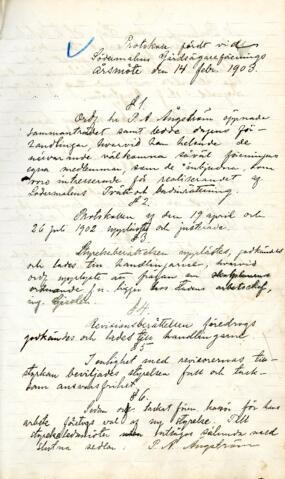 Protokoll fördt vid
Södermalms Gårdsägareförenings
årsmöte den 14 febr. 1903.
§ 1.
Ordf. hr P. A. Ångström öppnade
sammanträdet samt ledde dagens för-
handlingar, hvarvid han helsade de
närvarande välkomna såväl föreningens
egna medlemmar som de inbjudna, som
voro intresserade för realiserandet af
Södermalms Tvätt och badinrättning.
§ 2.
Protokollen af den 19 april och
26 juli 1902 upplästes och justerade.
Styrelseberättelsen upplästes, godkändes
och lades till handlingarne, hvarvid
ordf. upplyste att frågan om
hos stadens arbetschef,
ing.
§ 4.
Revisionsberättelsen föredrogs
godkändes och lades till handlingarne.
I enlighet med revisorernas till-
styrkan beviljades styrelsen full och tack-
sam ansvarsfrihet.
§ 6.
Sedan ordf. tackat för
arbete företogs val af ny styrelse. Till
styrelseledamöter sålunda med
slutna sedlar. P. A. Ångström